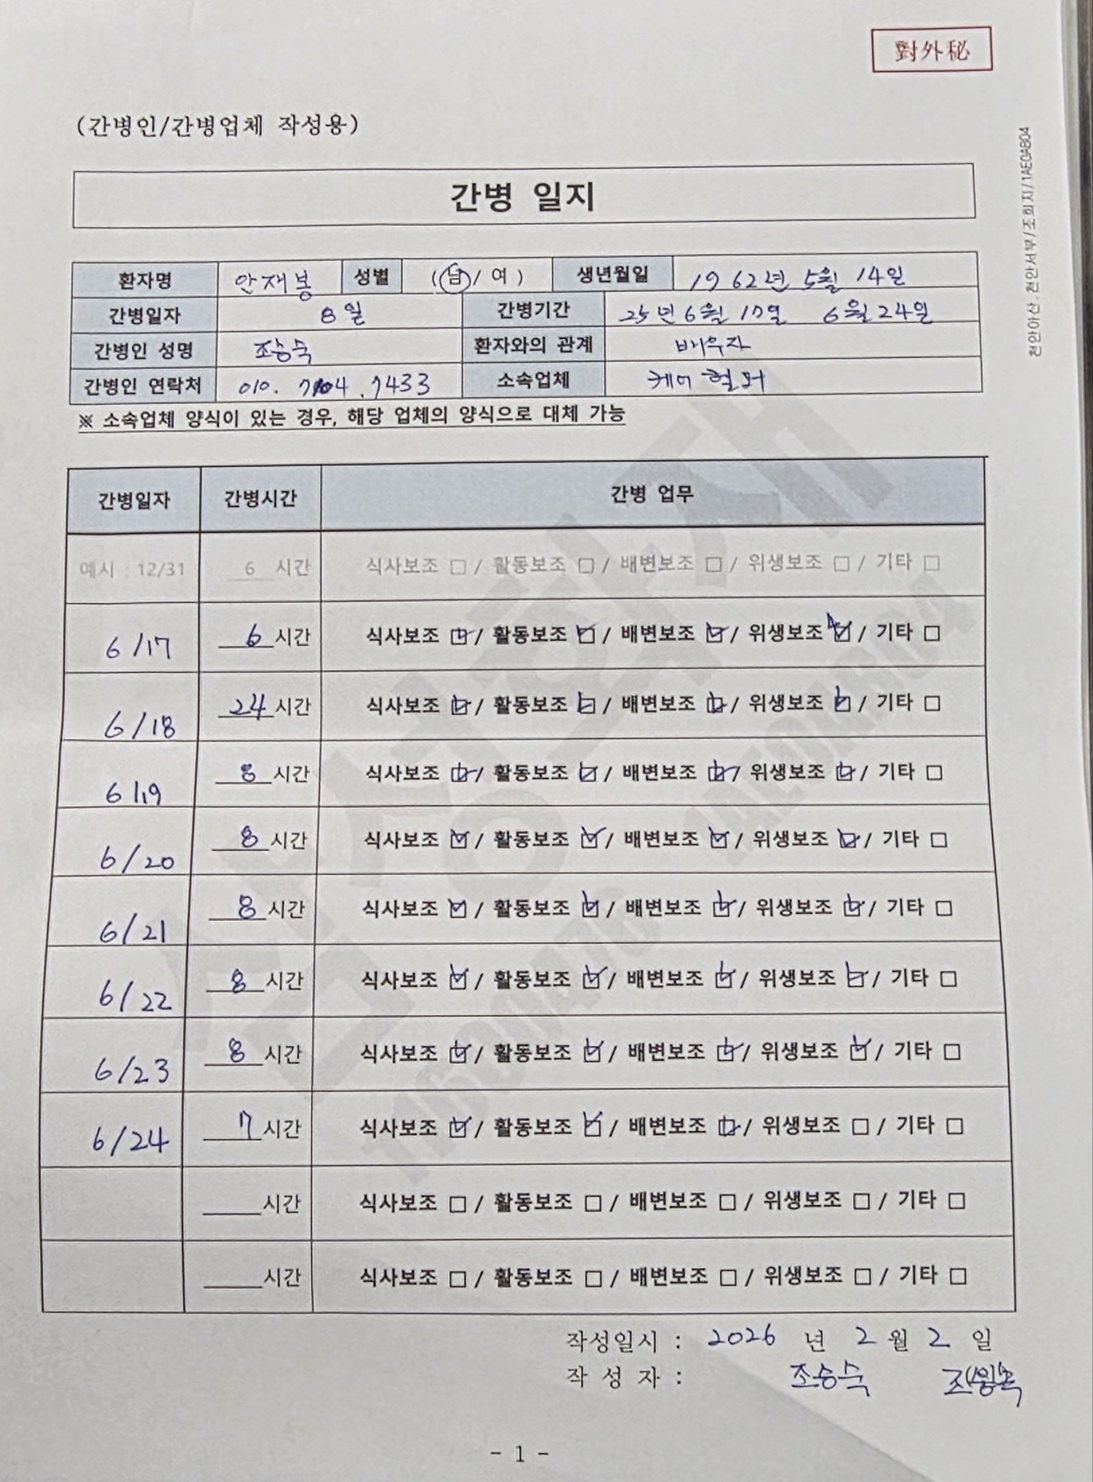 對外秘
(간병인/간병업체 작성용)
천안아산.천안서부/조회지/1AE0AB04
간병 일지
환자명 안재봉 성별 (남/여) 생년월일 1962년 5월 14일
간병일자 8일 간병기간 25년 6월 17일 6월 24일
간병인 성명 조승숙 환자와의 관계 배우자
간병인 연락처 010. 7104.7433 소속업체 케어
※ 소속업체 양식이 있는 경우, 해당 업체의 양식으로 대체 가능
간병일자 간병시간 간병 업무
예시 : 12/31 6 시간 식사보조 □ / 활동보조 □ / 배변보조 □ / 위생보조 □ / 기타 □
6/17 6 시간 식사보조 ☑ / 활동보조 ☑ / 배변보조 ☑ / 위생보조 ☑ / 기타 □
6/18 24 시간 식사보조 ☑ / 활동보조 ☑ / 배변보조 ☑ / 위생보조 ☑ / 기타 □
6/19 8 시간 식사보조 ☑ / 활동보조 ☑ / 배변보조 ☑ / 위생보조 ☑ / 기타 □
6/20 8 시간 식사보조 ☑ / 활동보조 ☑ / 배변보조 ☑ / 위생보조 ☑ / 기타 □
6/21 8 시간 식사보조 ☑ / 활동보조 ☑ / 배변보조 ☑ / 위생보조 ☑ / 기타 □
6/22 8 시간 식사보조 ☑ / 활동보조 ☑ / 배변보조 ☑ / 위생보조 ☑ / 기타 □
6/23 8 시간 식사보조 ☑ / 활동보조 ☑ / 배변보조 ☑ / 위생보조 ☑ / 기타 □
6/24 7 시간 식사보조 ☑ / 활동보조 ☑ / 배변보조 ☑ / 위생보조 □ / 기타 □
시간 식사보조 □ / 활동보조 □ / 배변보조 □ / 위생보조 □ / 기타 □
시간 식사보조 □ / 활동보조 □ / 배변보조 □ / 위생보조 □ / 기타 □
삼성화재
작성일시 : 2026 년 2 월 2 일
작 성 자 : 조승숙
- 1 -